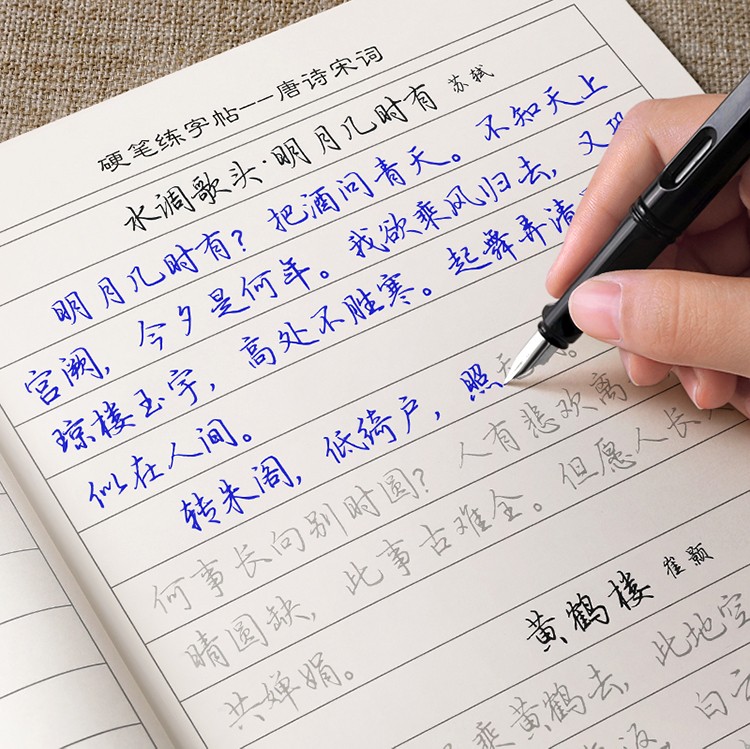 硬笔练字帖——唐诗宋词
水调歌头·明月几时有 苏轼
明月几时有?把酒问青天。不知天上
宫阙,今夕是何年。我欲乘风归去,又
琼楼玉宇,高处不胜寒。起舞弄清
似在人间。
转朱阁,低绮户,照
何事长向别时圆?人有悲欢离
晴圆缺,此事古难全。但愿人长
共婵娟。
黄鹤楼 崔颢
乘黄鹤去,此地空
返,白云